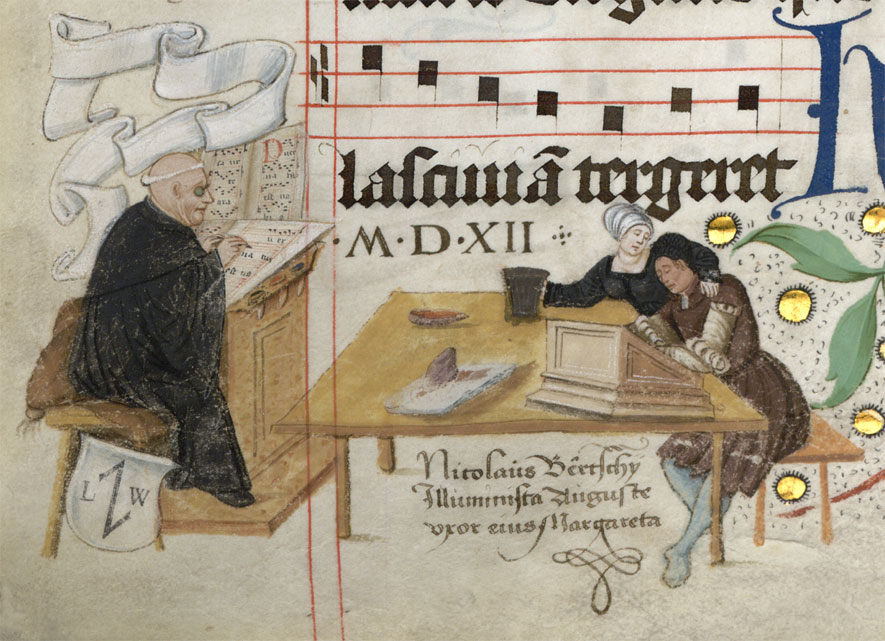 lasciuiā tergeret
·M·D·XII·
L W
Nicolaus Bertschy
Illuminista Auguste
vxor eius Margareta